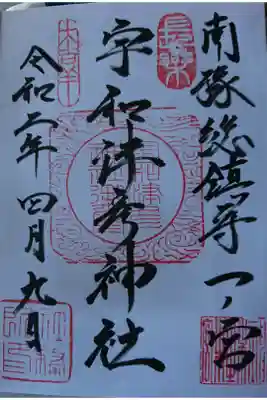 南豫総鎮守一ノ宮
宇和津彦神社
令和二年四月九日